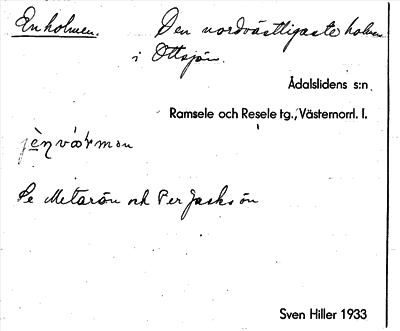 Enholmen. Den nordvästligaste holmen
i Ottsjön.
Ådalslidens s:n.
Ramsele och Resele tg., Västernorrl. l.
Se Metarön och Per Jacksön
Sven Hiller 1933